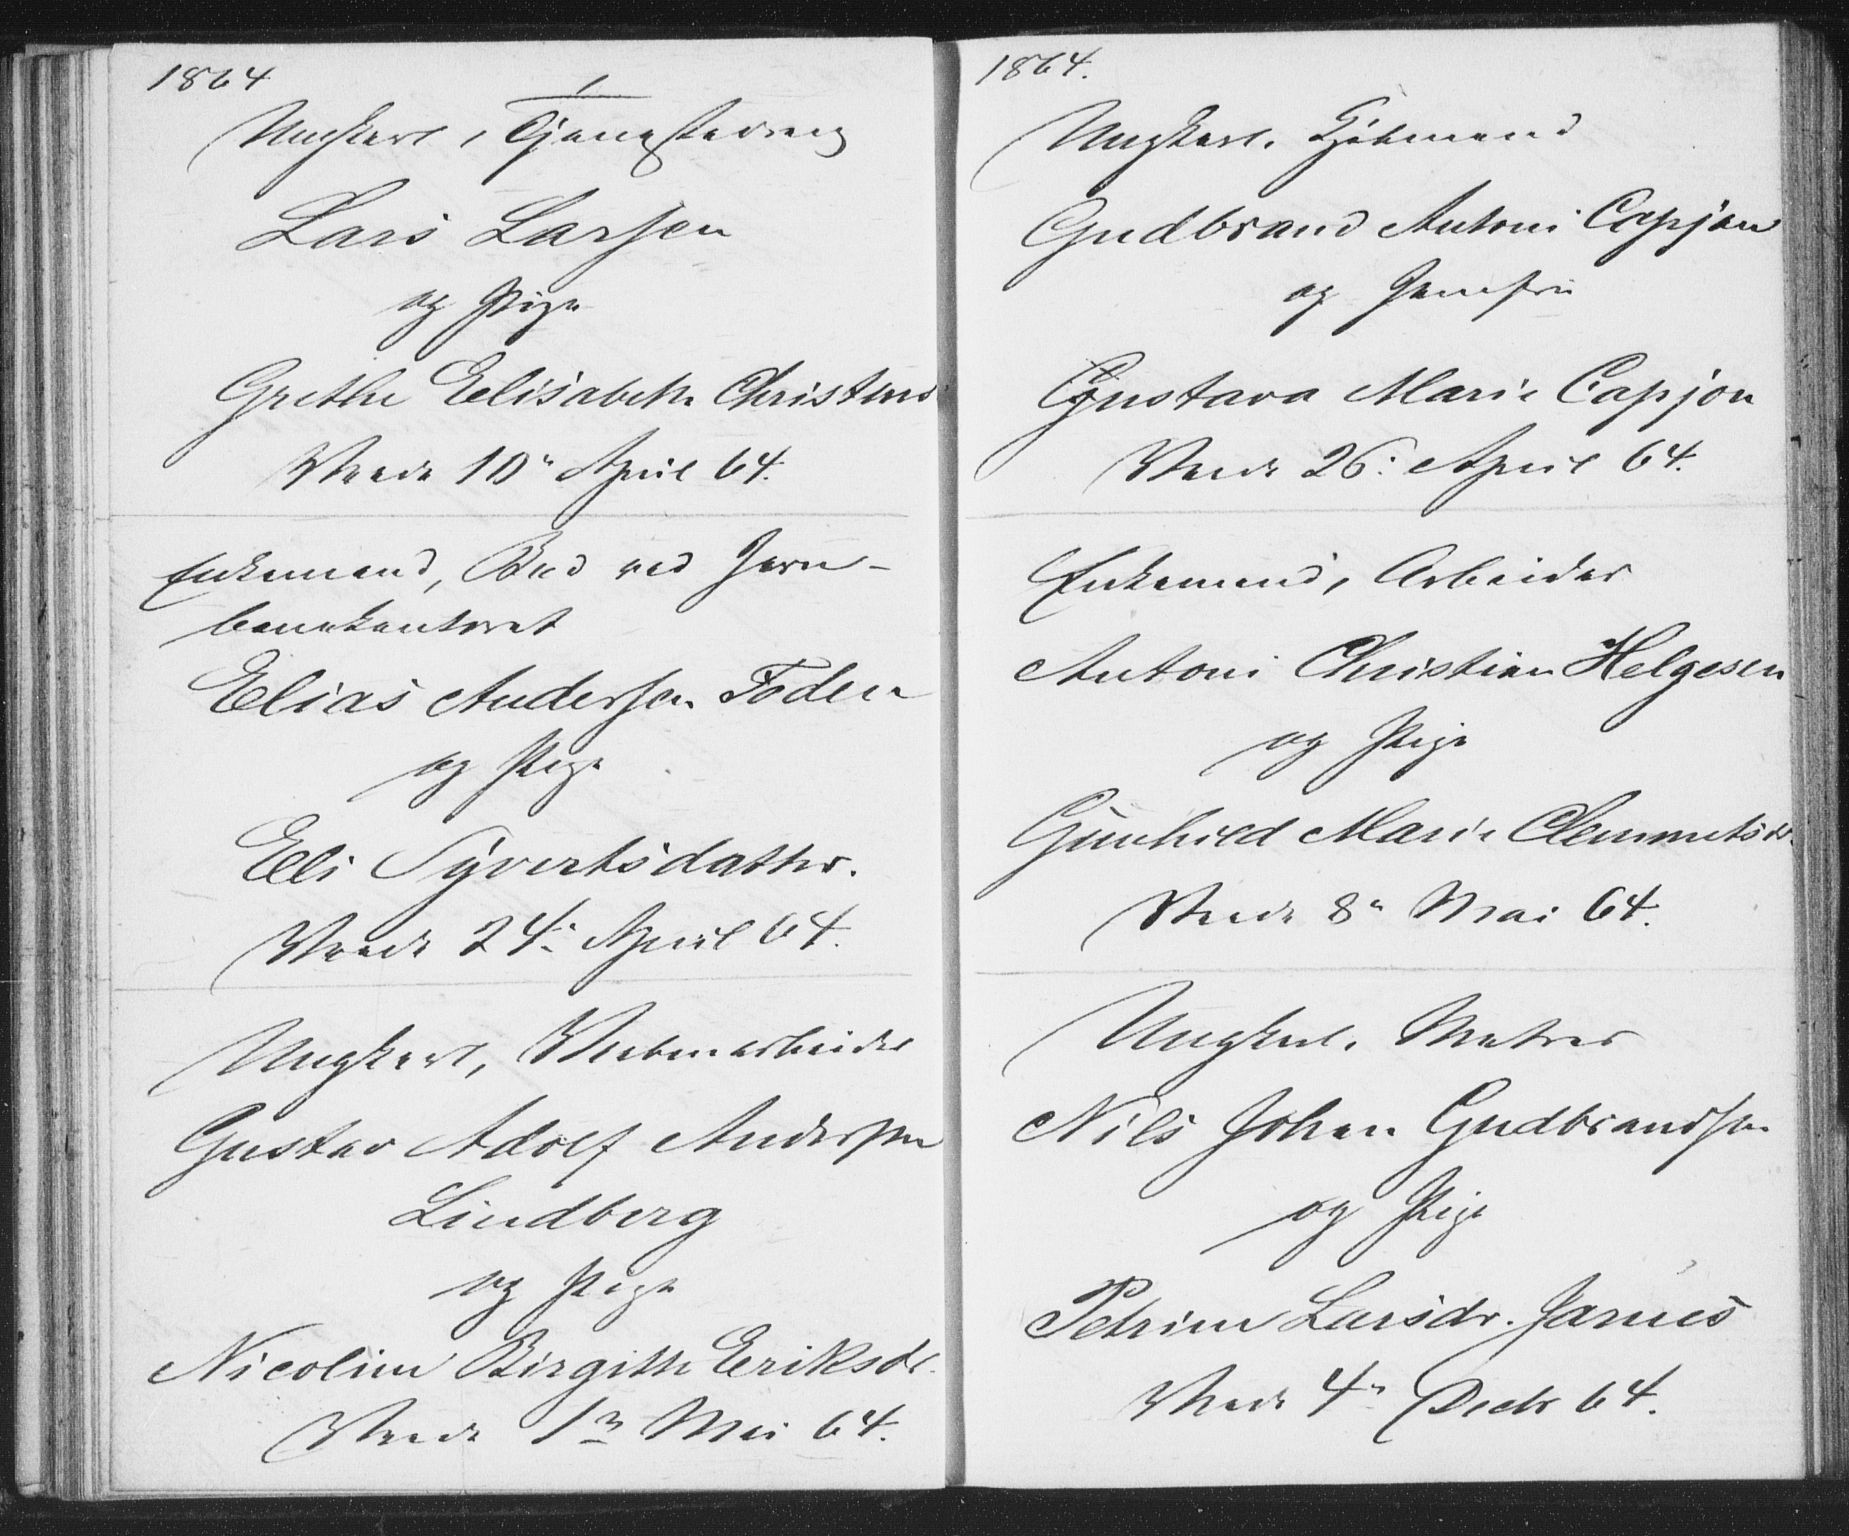 1864
Ungkarl, Tjenestedreng
Lars Larsen
og Pige
Grethe Elisabeth Christens
Viede 10de April 64.
Enkemand, Bud ved Jern-
banekontoret
Elias Andersen Foden
og Pige
Eli Syvertsdatter.
Viede 24de April 64.
Ungkarl,
Gustav Adolf Andersen
Lindberg
og Pige
Nicoline Birgitte Eriksdr.
Viede 1ste Mai 64.
1864.
Ungkarl. Kjøbmand
Gudbrand Antoni Capjon
og Jomfru
Gustava Marie Capjon
Viede 26de April 64.
Enkemand, Arbeider
Antoni Christian Helgesen
og Pige
Gunhild Marie Clemmetsdr.
Viede 8de Mai 64.
Ungkarl. Matros
Nils Johan Gudbrandsen
og Pige
Petrine Larsdr. Jarnes
Viede 4de Decbr 64.